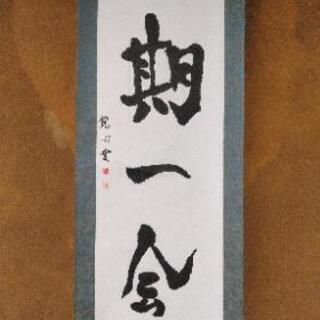 期一会